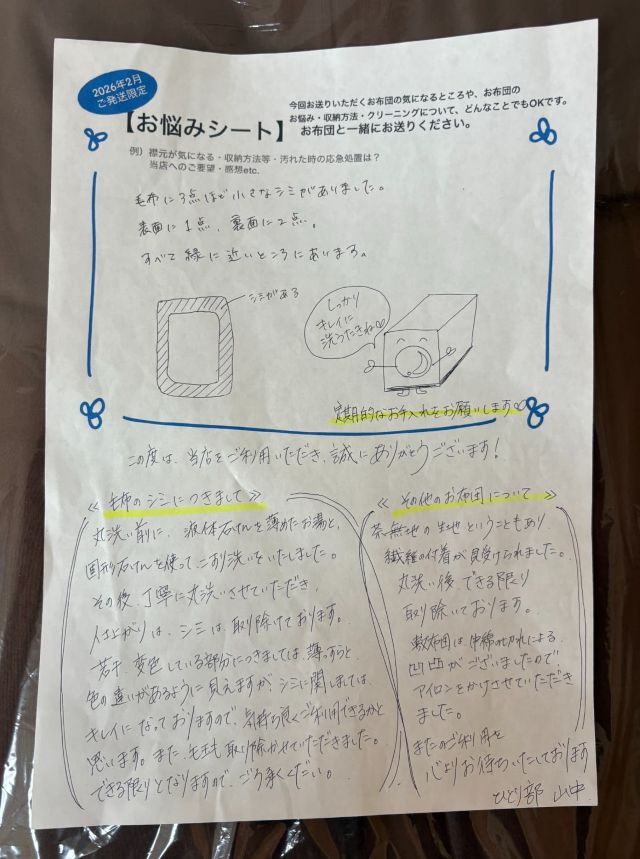 2026年2月
ご発送限定
【お悩みシート】
今回お送りいただくお布団の気になるところや、お布団の
お悩み・収納方法・クリーニングについて、どんなことでもOKです。
お布団と一緒にお送りください。
例）襟元が気になる・収納方法等・汚れた時の応急処置は？
当店へのご要望・感想etc.
毛布に3点ほど小さなシミがありました。
表面に1点、裏面に2点。
すべて縁に近いところにあります。
シミがある
しっかり
キレイに
洗うたきね♡
定期的なお手入れをお願いします♡
この度は、当店をご利用いただき、誠にありがとうございます！
≪毛布のシミにつきまして≫
丸洗い前に、液体石けんを薄めたお湯と、
固形石けんを使ってこすり洗いをいたしました。
その後、丁寧に丸洗いさせていただき、
仕上がりは、シミは取り除けております。
若干、変色している部分につきましては、薄っすらと
色の違いがあるように見えますが、シミに関しましては、
キレイになっておりますので、気持ち良くご利用できるかと
思います。また、毛玉も取り除かせていただきました。
できる限りとなりますので、ご了承ください。
≪その他のお布団について≫
茶無地の生地ということもあり
繊維の付着が見受けられました。
丸洗い後、できる限り
取り除いております。
敷布団は、中綿の切れによる
凹凸がございましたので
アイロンをかけさせていただき
ました。
またのご利用を
心よりお待ちいたしております
ひとり部 山中